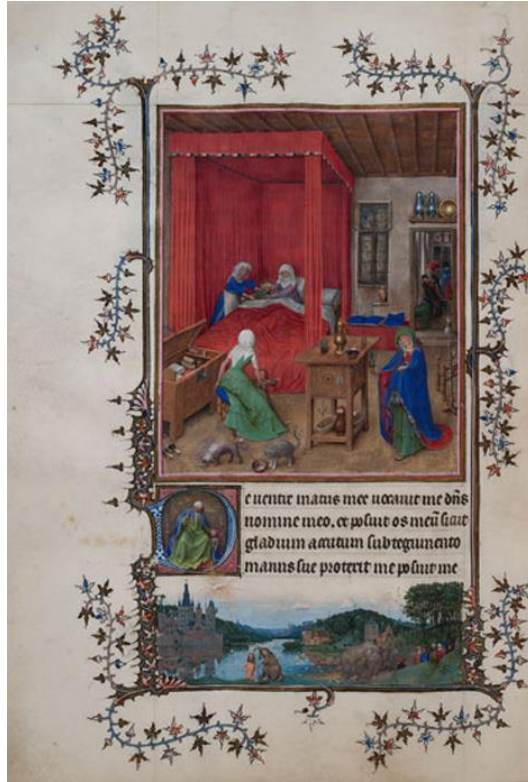 De ventre matris mee vocavit me dn̄s
nomine meo, et posuit os meū sicut
gladium accutum sub tegumento
manus sue protexit me posuit me